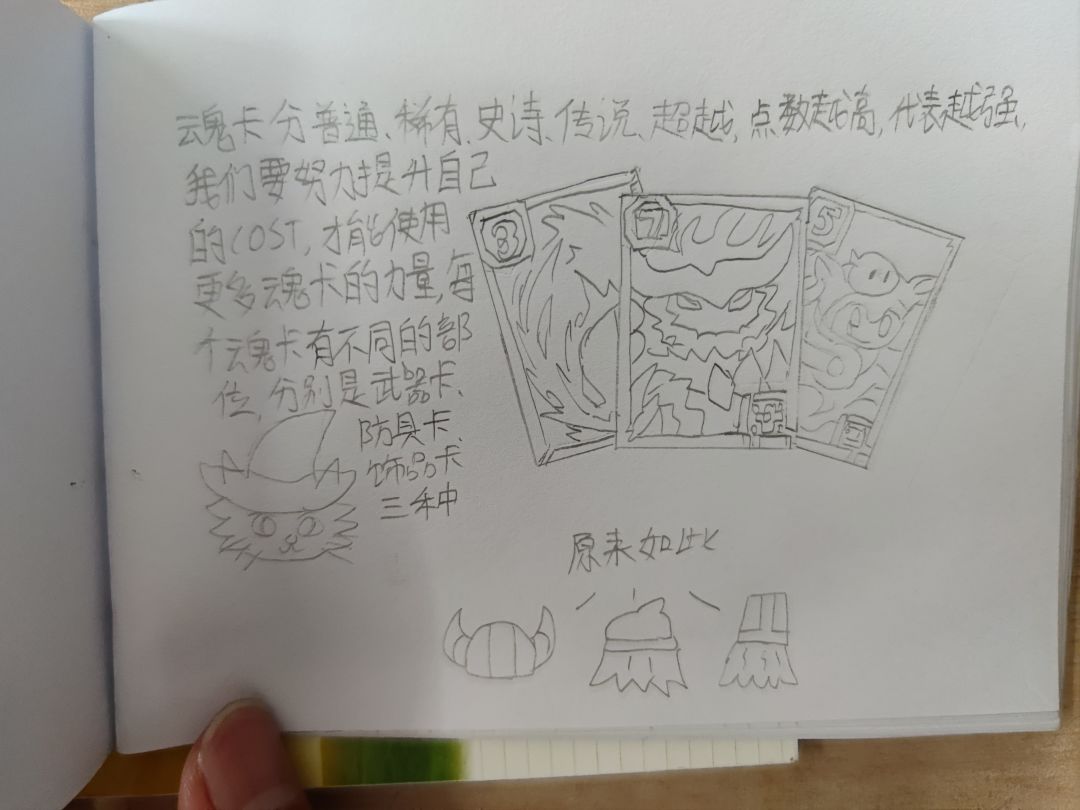 魂卡分普通、稀有、史诗、传说、超越,点数越高,代表越强,
我们要努力提升自己
的COST,才能使用
更多魂卡的力量,每
个魂卡有不同的部
位,分别是武器卡、
防具卡、
饰品卡
三种
8
7
5
原来如此